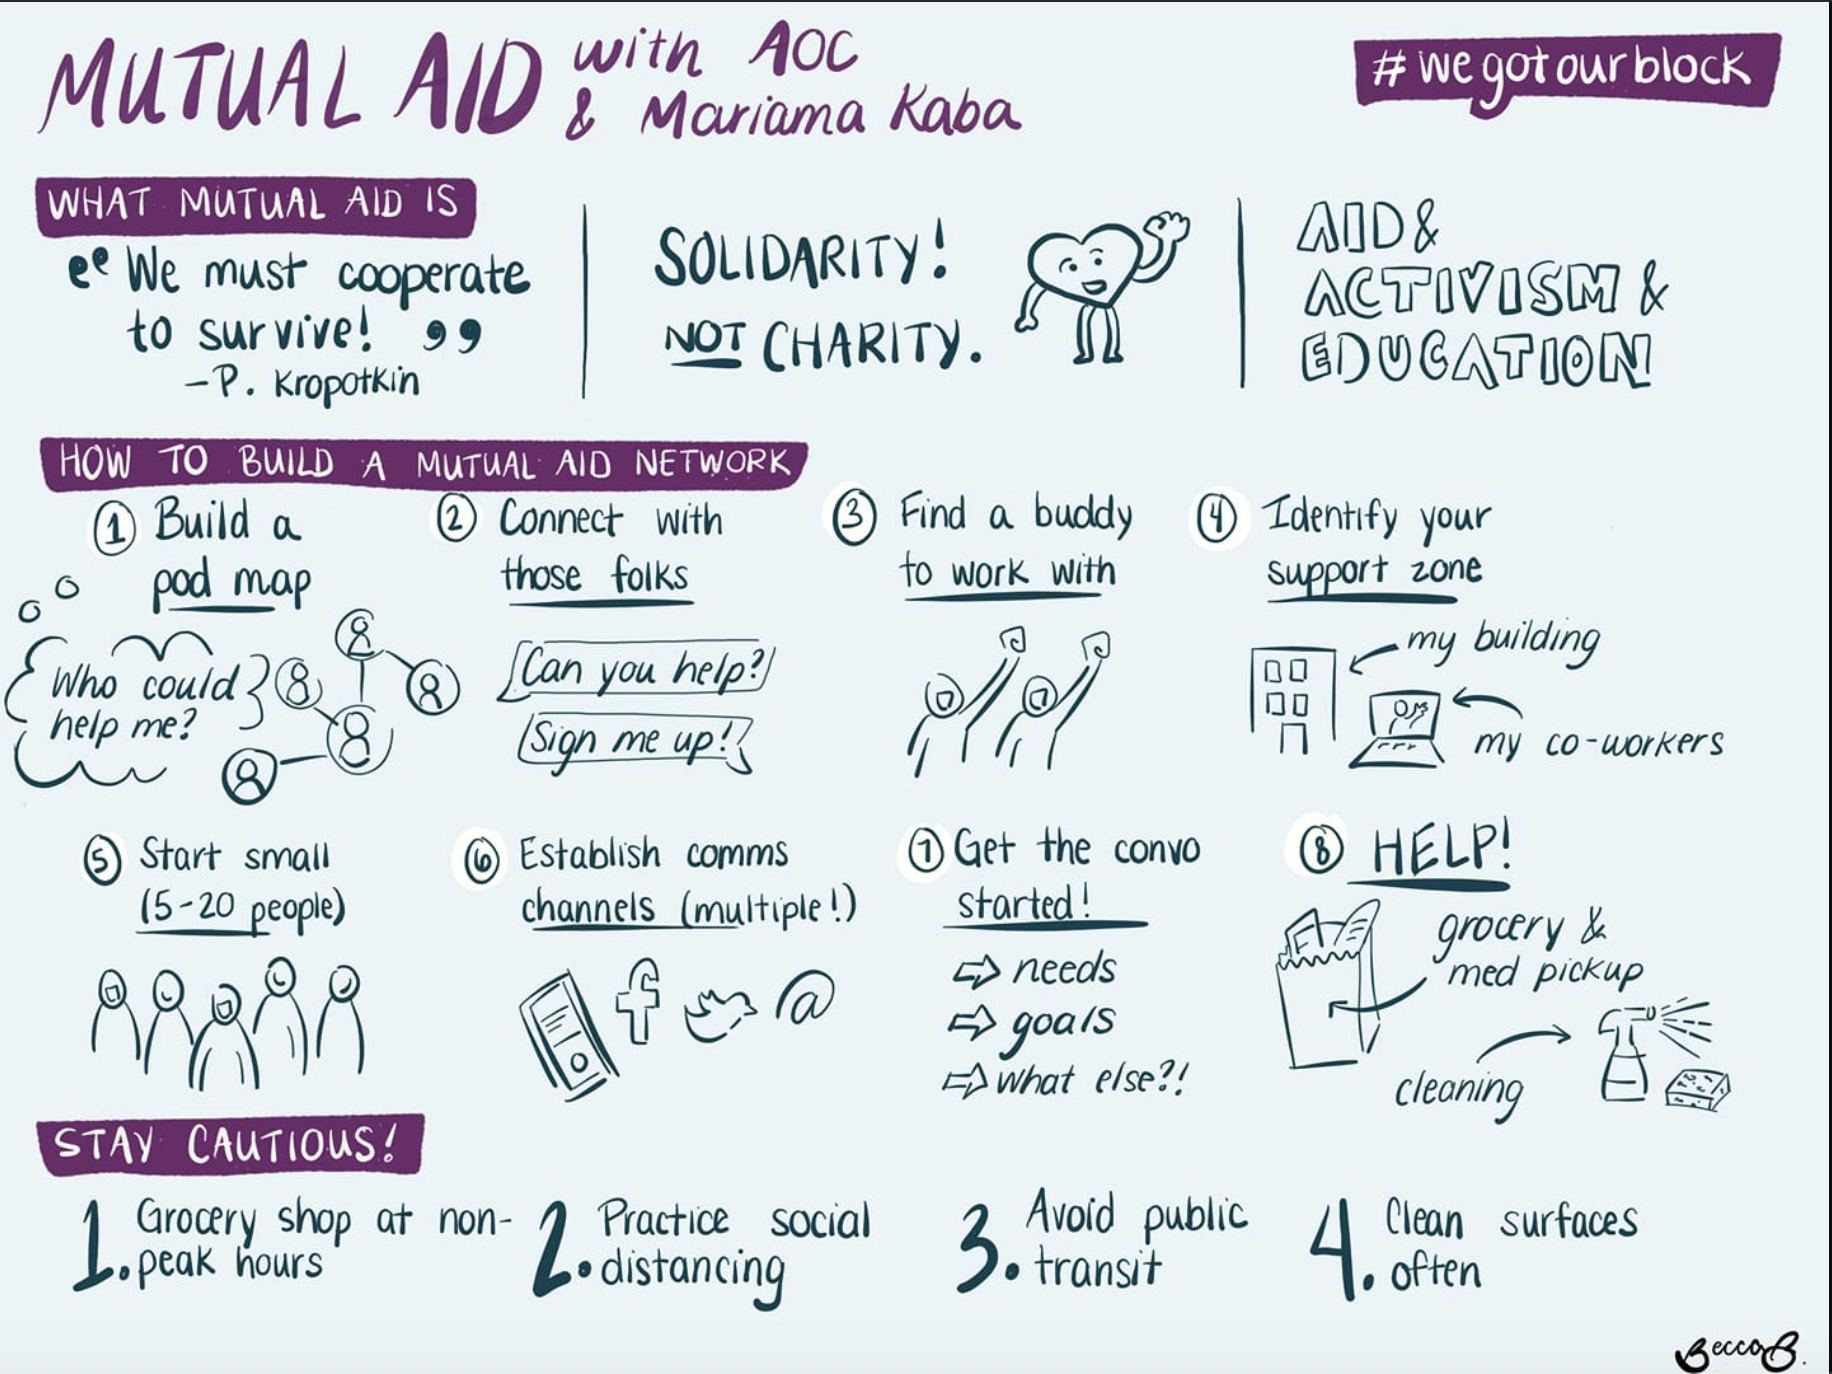 MUTUAL AID with AOC
& Mariama Kaba
#wegotourblock
WHAT MUTUAL AID IS
“We must cooperate
to survive!”
-P. Kropotkin
SOLIDARITY!
NOT CHARITY.
AID &
ACTIVISM &
EDUCATION
HOW TO BUILD A MUTUAL AID NETWORK
1 Build a
pod map
Who could
help me?
2 Connect with
those folks
Can you help?
Sign me up!
3 Find a buddy
to work with
4 Identify your
support zone
my building
my co-workers
5 Start small
(5-20 people)
6 Establish comms
channels (multiple!)
f
@
7 Get the convo
started!
⇨ needs
⇨ goals
⇨ what else?!
8 HELP!
grocery &
med pickup
cleaning
STAY CAUTIOUS!
1. Grocery shop at non-
peak hours
2. Practice social
distancing
3. Avoid public
transit
4. Clean surfaces
often
BeccaB.